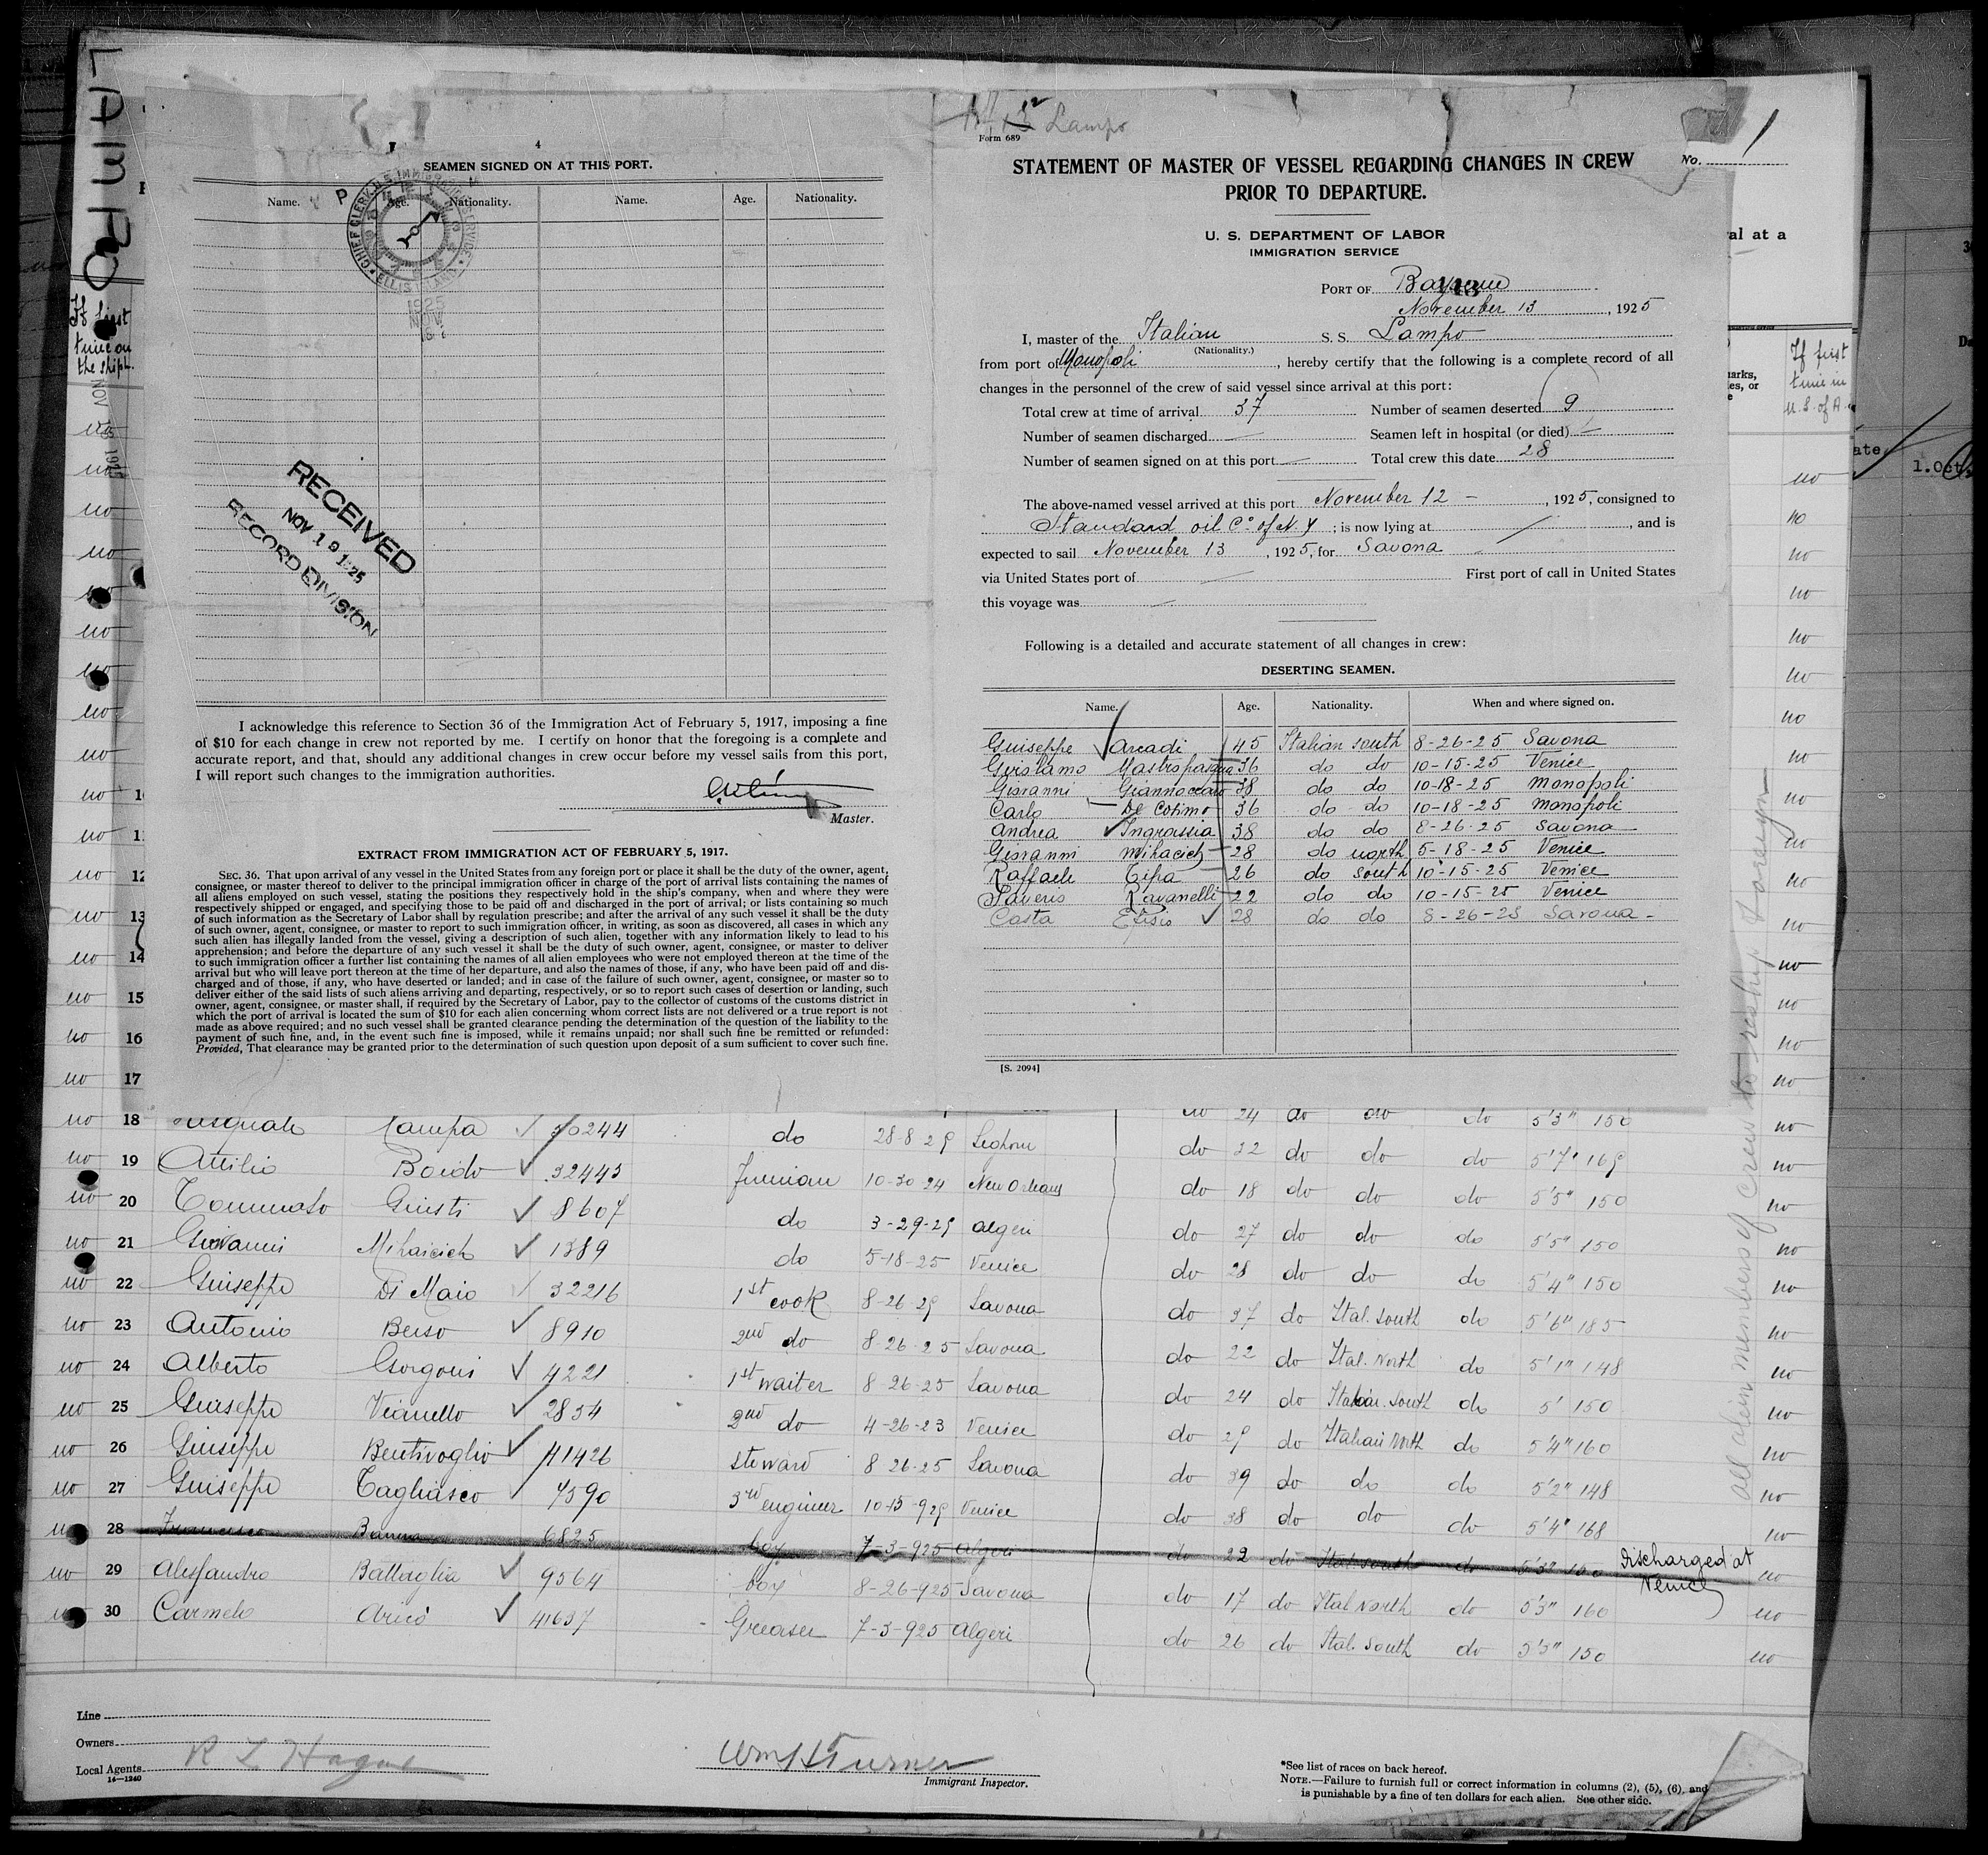 LAMPO
4
SEAMEN SIGNED ON AT THIS PORT.
Name. Age. Nationality. Name. Age. Nationality.
CHIEF CLERK U.S. IMMIGRATION SERVICE
ELLIS ISLAND
1925
NOV
RECEIVED
NOV 19 1925
RECORD DIVISION
I acknowledge this reference to Section 36 of the Immigration Act of February 5, 1917, imposing a fine
of $10 for each change in crew not reported by me. I certify on honor that the foregoing is a complete and
accurate report, and that, should any additional changes in crew occur before my vessel sails from this port,
I will report such changes to the immigration authorities.
Master.
EXTRACT FROM IMMIGRATION ACT OF FEBRUARY 5, 1917.
SEC. 36. That upon arrival of any vessel in the United States from any foreign port or place it shall be the duty of the owner, agent,
consignee, or master thereof to deliver to the principal immigration officer in charge of the port of arrival lists containing the names of
all aliens employed on such vessel, stating the positions they respectively hold in the ship's company, when and where they were
respectively shipped or engaged, and specifying those to be paid off and discharged in the port of arrival; or lists containing so much
of such information as the Secretary of Labor shall by regulation prescribe; and after the arrival of any such vessel it shall be the duty
of such owner, agent, consignee, or master to report to such immigration officer, in writing, as soon as discovered, all cases in which any
such alien has illegally landed from the vessel, giving a description of such alien, together with any information likely to lead to his
apprehension; and before the departure of any such vessel it shall be the duty of such owner, agent, consignee, or master to deliver
to such immigration officer a further list containing the names of all alien employees who were not employed thereon at the time of the
arrival but who will leave port thereon at the time of her departure, and also the names of those, if any, who have been paid off and dis-
charged and of those, if any, who have deserted or landed; and in case of the failure of such owner, agent, consignee, or master so to
deliver either of the said lists of such aliens arriving and departing, respectively, or so to report such cases of desertion or landing, such
owner, agent, consignee, or master shall, if required by the Secretary of Labor, pay to the collector of customs of the customs district in
which the port of arrival is located the sum of $10 for each alien concerning whom correct lists are not delivered or a true report is not
made as above required; and no such vessel shall be granted clearance pending the determination of the question of the liability to the
payment of such fine, and, in the event such fine is imposed, while it remains unpaid; nor shall such fine be remitted or refunded:
Provided, That clearance may be granted prior to the determination of such question upon deposit of a sum sufficient to cover such fine.
Lampo
Form 689
STATEMENT OF MASTER OF VESSEL REGARDING CHANGES IN CREW
PRIOR TO DEPARTURE.
U. S. DEPARTMENT OF LABOR
IMMIGRATION SERVICE
PORT OF Bayonne
November 13, 1925
I, master of the Italian S. S. Lampo
(Nationality.)
from port of Monopoli, hereby certify that the following is a complete record of all
changes in the personnel of the crew of said vessel since arrival at this port:
Total crew at time of arrival 37 Number of seamen deserted 9
Number of seamen discharged — Seamen left in hospital (or died) —
Number of seamen signed on at this port — Total crew this date 28
The above-named vessel arrived at this port November 12 -, 1925, consigned to
Standard oil Co of N. Y; is now lying at /, and is
expected to sail November 13, 1925, for Savona
via United States port of — First port of call in United States
this voyage was —
Following is a detailed and accurate statement of all changes in crew:
DESERTING SEAMEN.
Name. Age. Nationality. When and where signed on.
Guiseppe Arcadi 45 Italian south 8-26-25 Savona
Mastropasqua 36 do do 10-15-25 Venice
Giovanni Giannoccaro 38 do do 10-18-25 monopoli
Carlo De Cosimo 36 do do 10-18-25 monopoli
Andrea Ingrassia 38 do do 8-26-25 Savona
Giovanni Mihacich 28 do north 5-18-25 Venice
Raffaele 26 do south 10-15-25 Venice
Saverio Ravanelli 22 do do 10-15-25 Venice
Costa Efisio 28 do do 8-26-25 Savona -
[S. 2094]
No. 1
val at a
If first time on the ship.
If first time in U.S. of A.
1. Oct.
all alien members of crew to reship foreign
no 18 Pasquale Campa 30244 do 28-8-25 Leghorn no 24 do do do 5'3" 150 no
no 19 Attilio Boido 32443 Juniour 10-30-24 New Orleans do 32 do do do 5'7" 165 no
no 20 Tommaso Giusti 8607 do 3-29-25 algeri do 18 do do do 5'5" 150 no
no 21 Giovanni Mihaicich 1389 do 5-18-25 Venice do 27 do do do 5'5" 150 no
no 22 Guiseppe Di Maio 32216 1st cook 8-26-25 Savona do 28 do do do 5'4" 150 no
no 23 Antonio Berso 8910 2nd do 8-26-25 Savona do 37 do Ital. South do 5'6" 185 no
no 24 Alberto Gorgoni 4221 1st waiter 8-26-25 Savona do 22 do Ital. North do 5'1" 148 no
no 25 Guiseppe Vianello 2834 2nd do 4-26-23 Venice do 24 do Italian. South do 5' 150 no
no 26 Giuseppe Bentivoglio 41426 steward 8-26-25 Savona do 29 do Italian North do 5'4" 160 no
no 27 Guiseppe Tagliasco 4590 3rd engineer 10-15-925 Venice do 39 do do do 5'2" 148 no
no 28 Francesco Banna 6825 boy 7-3-925 Algeri do 38 do do do 5'4" 168 no
no 29 Alessandro Battaglia 9564 boy 8-26-925 Savona do 22 do Ital. South do 5'3" 150 Discharged at Venice no
no 30 Carmelo Aricò 41637 Greaser 7-3-925 Algeri do 17 do Ital North do 5'3" 160 no
do 26 do Ital. South do 5'3" 150 no
Line
Owners
Local Agents R L Hague
14—1240
Wm H Turner
Immigrant Inspector.
*See list of races on back hereof.
NOTE.—Failure to furnish full or correct information in columns (2), (5), (6), and
is punishable by a fine of ten dollars for each alien. See other side.